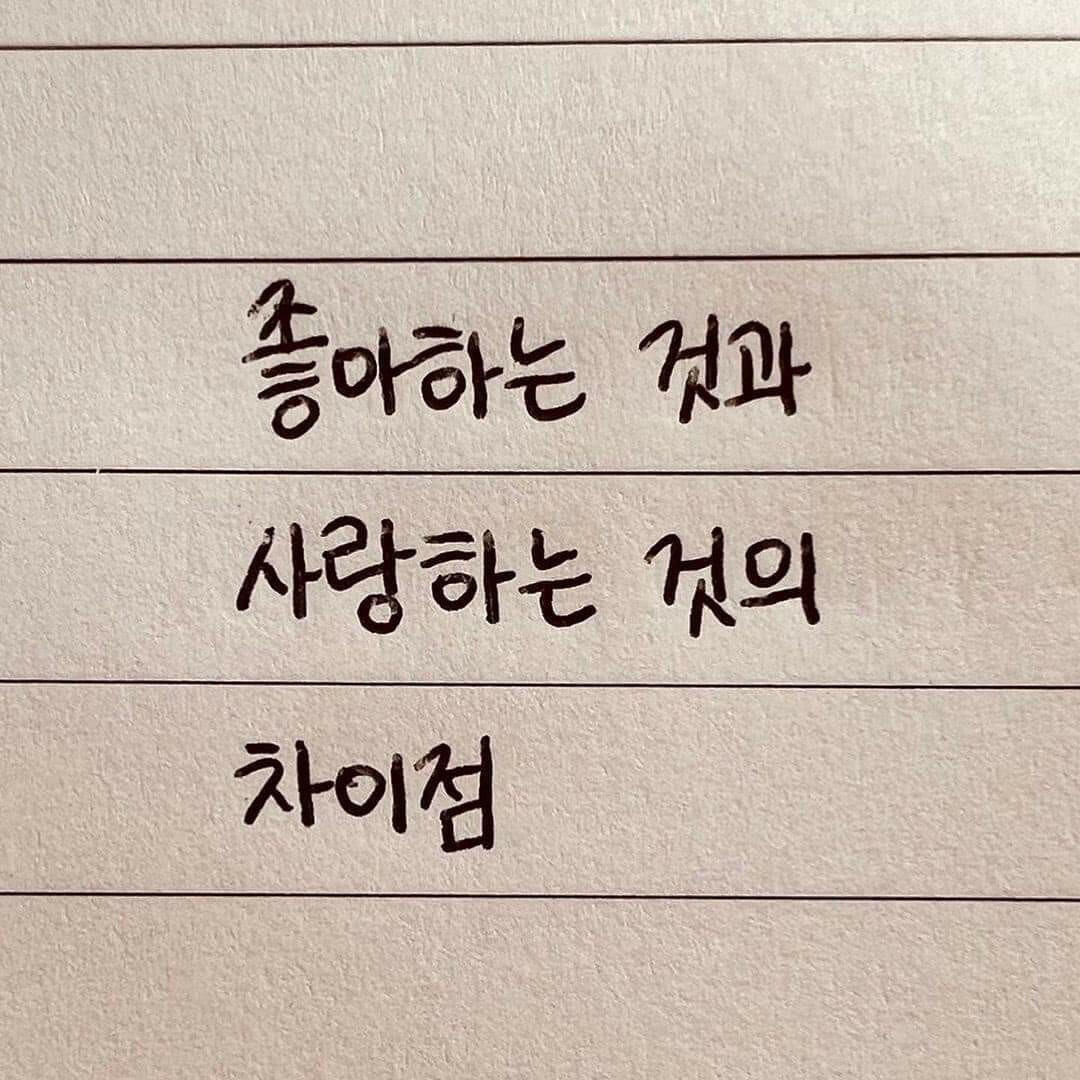 좋아하는 것과
사랑하는 것의
차이점